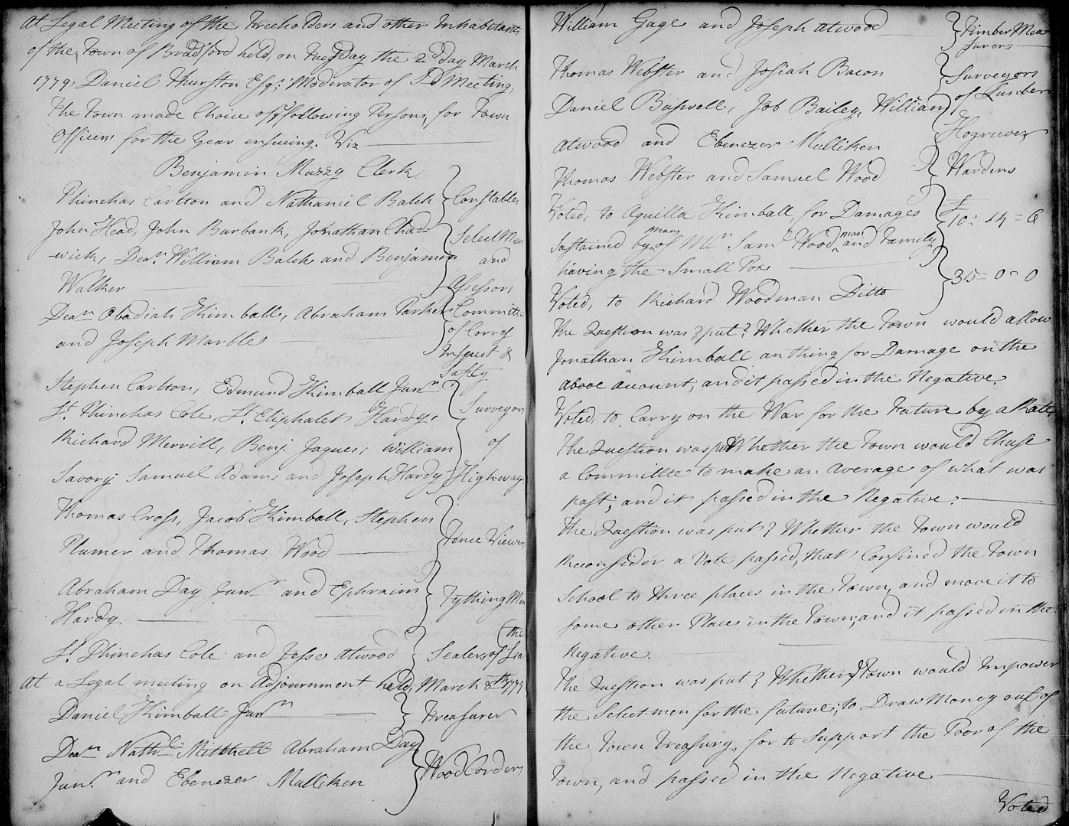 At Legal Meeting of the Freeholders and other Inhabitants
of the Town of Bradford held, on Tuesday the 2d day March
1779, Daniel Thurston Esqr; Moderator of sd Meeting
The Town made Choice of ye following Persons, for Town
Officers for the Year ensueing. Viz
Benjamin Muzzy Clerk
Phinehas Carlton and Nathaniel Balch } Constables
John Head, John Burbank, Jonathan Chad
wick, Dean William Balch and Benjamin } Select Men and Assessors
Walker
Dean Obadiah Kimball, Abraham Parker } Committee of Corres Inspect & Safty
and Joseph Marbles
Stephen Carlton, Edmund Kimball Junr
Lt Phinehas Cole, Lt Eliphalet Hardy,
Richard Merrill, Benj. Jaques, William } Surveyors of Highways
Savory, Samuel Adams and Joseph Hardy
Thomas Cross, Jacob Kimball, Stephen
Plumer and Thomas Wood } Fence Viewers
Abraham Day Junr and Ephraim } Tything Men
Hardy
Lt Phinehas Cole and Jesse Atwood } Sealers of the Lea
At a Legal meeting on Adjournment held March 1779
Daniel Kimball Junr } Treasurer
Dean Nathl Mitchell Abraham Day
Junr and Ebenezer Mulliken } Wood Corders
William Gage and Joseph Atwood } Timber Mea
surers
Thomas Webster and Josiah Bacon } Surveyors of Lumber
Daniel Buswell, Job Bailey, William
Atwood and Ebenezer Mulliken } Hogrieves
Thomas Webster and Samuel Wood } Wardens
Voted, to Aquilla Kimball, for Damages } £ 10 : 14 = 6
Sustained by means of Mr Saml Wood man and Family
having the Small Pox
Voted, to Richard Woodman Ditto } 35 = 0 = 0
The Question was put? Whether the Town would allow
Jonathan Kimball any thing for Damage on the
above account, and it passed in the Negative.
Voted to Carry on the War for the Future by a Rate
The Question was put Whether the Town would Chuse
a Committee to make an Average of what was
past; and it passed in the Negative;
The Question was put? Whether the Town would
Reconsider a Vote passed, that Confined the Town
School to three places in the Town, and move it to
some other Places in the Town, and it passed in the
Negative.
The Question was put? Whether ye Town would Impower
the Select men for the future, to Draw Money out of
the Town Treasury, for to Support the Poor of the
Town, and passed in the Negative
Voted